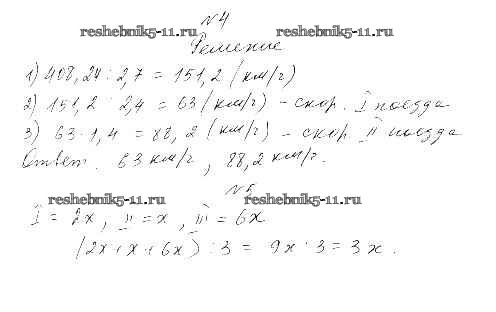 №4
reshebnik5-11.ru reshebnik5-11.ru
Решение
1) 408,24 : 2,7 = 151,2 (км/г)
2) 151,2 : 2,4 = 63 (км/г) - скор. I поезда
3) 63 · 1,4 = 88,2 (км/г) - скор II поезда
Ответ. 63 км/г, 88,2 км/г.
№5
reshebnik5-11.ru reshebnik5-11.ru
I = 2x, II = x, III = 6x
(2x+x+6x) : 3 = 9x : 3 = 3x.